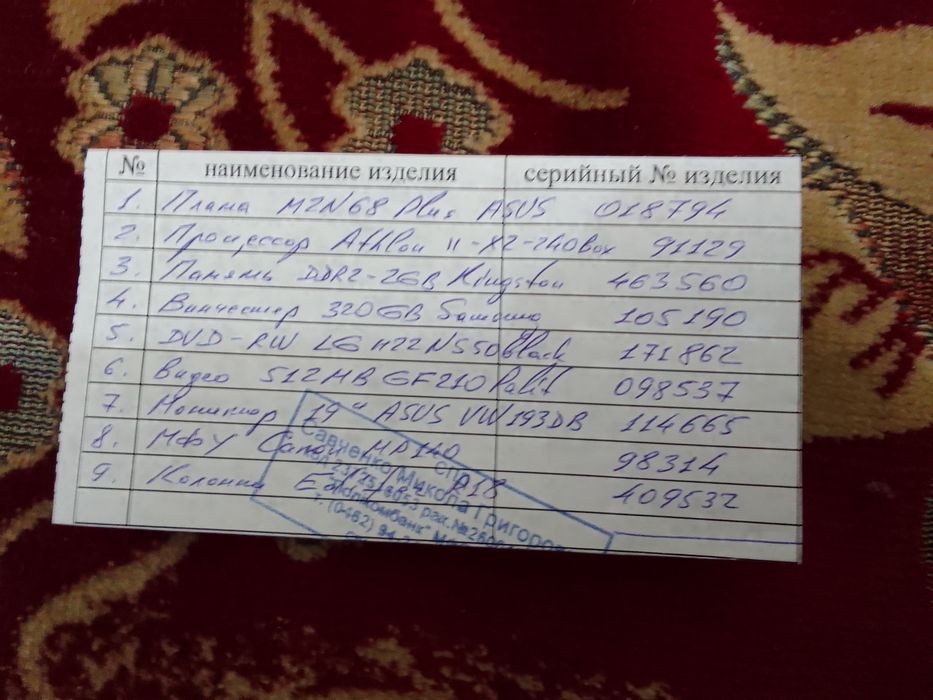 № наименование изделия серийный № изделия
1. Плата M2N68 Plus ASUS 018794
2. Процессор Athlon II-X2-240box 91129
3. Память DDR2-2GB Kingston 463560
4. Винчестер 320GB Samsung 105190
5. DVD-RW LG H22NS50black 171862
6. Видео 512MB GF210 Palit 098537
7. Монитор 19" ASUS VW193DB 114665
8. МФУ Canon MP140 98314
9. Колонки 409532
Савченко Микола Григоров
т. (0462)